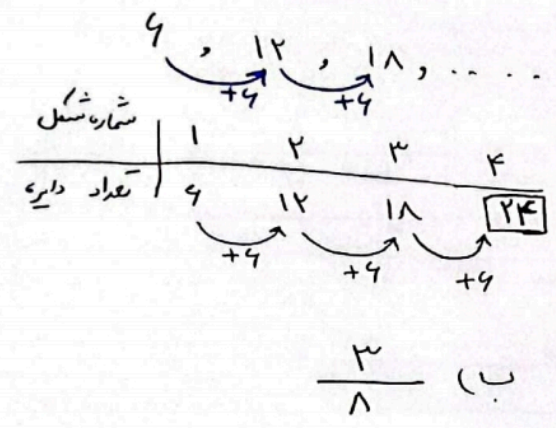 ۶ , ۱۲ , ۱۸ , .....
+۶ +۶
شماره شکل ۱ ۲ ۳ ۴
تعداد دایره ۶ ۱۲ ۱۸ ۲۴
+۶ +۶ +۶
ب) ۳/۸